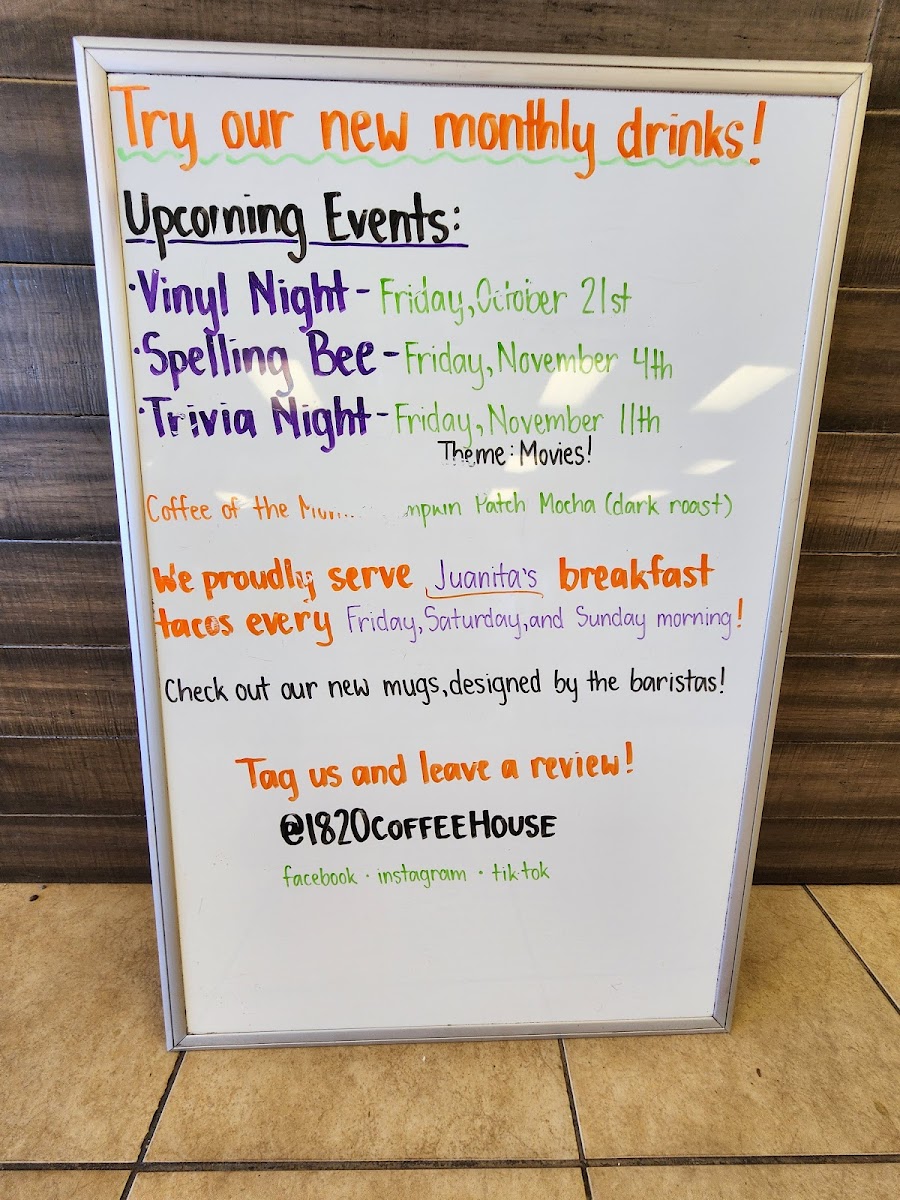 Try our new monthly drinks!
Upcoming Events:
·Vinyl Night - Friday, October 21st
·Spelling Bee - Friday, November 4th
·Trivia Night - Friday, November 11th
Theme: Movies!
Coffee of the Patch Mocha (dark roast)
We proudly serve Juanita's breakfast
tacos every Friday, Saturday, and Sunday morning!
Check out our new mugs, designed by the baristas!
Tag us and leave a review!
@1820COFFEEHOUSE
facebook · instagram · tik·tok